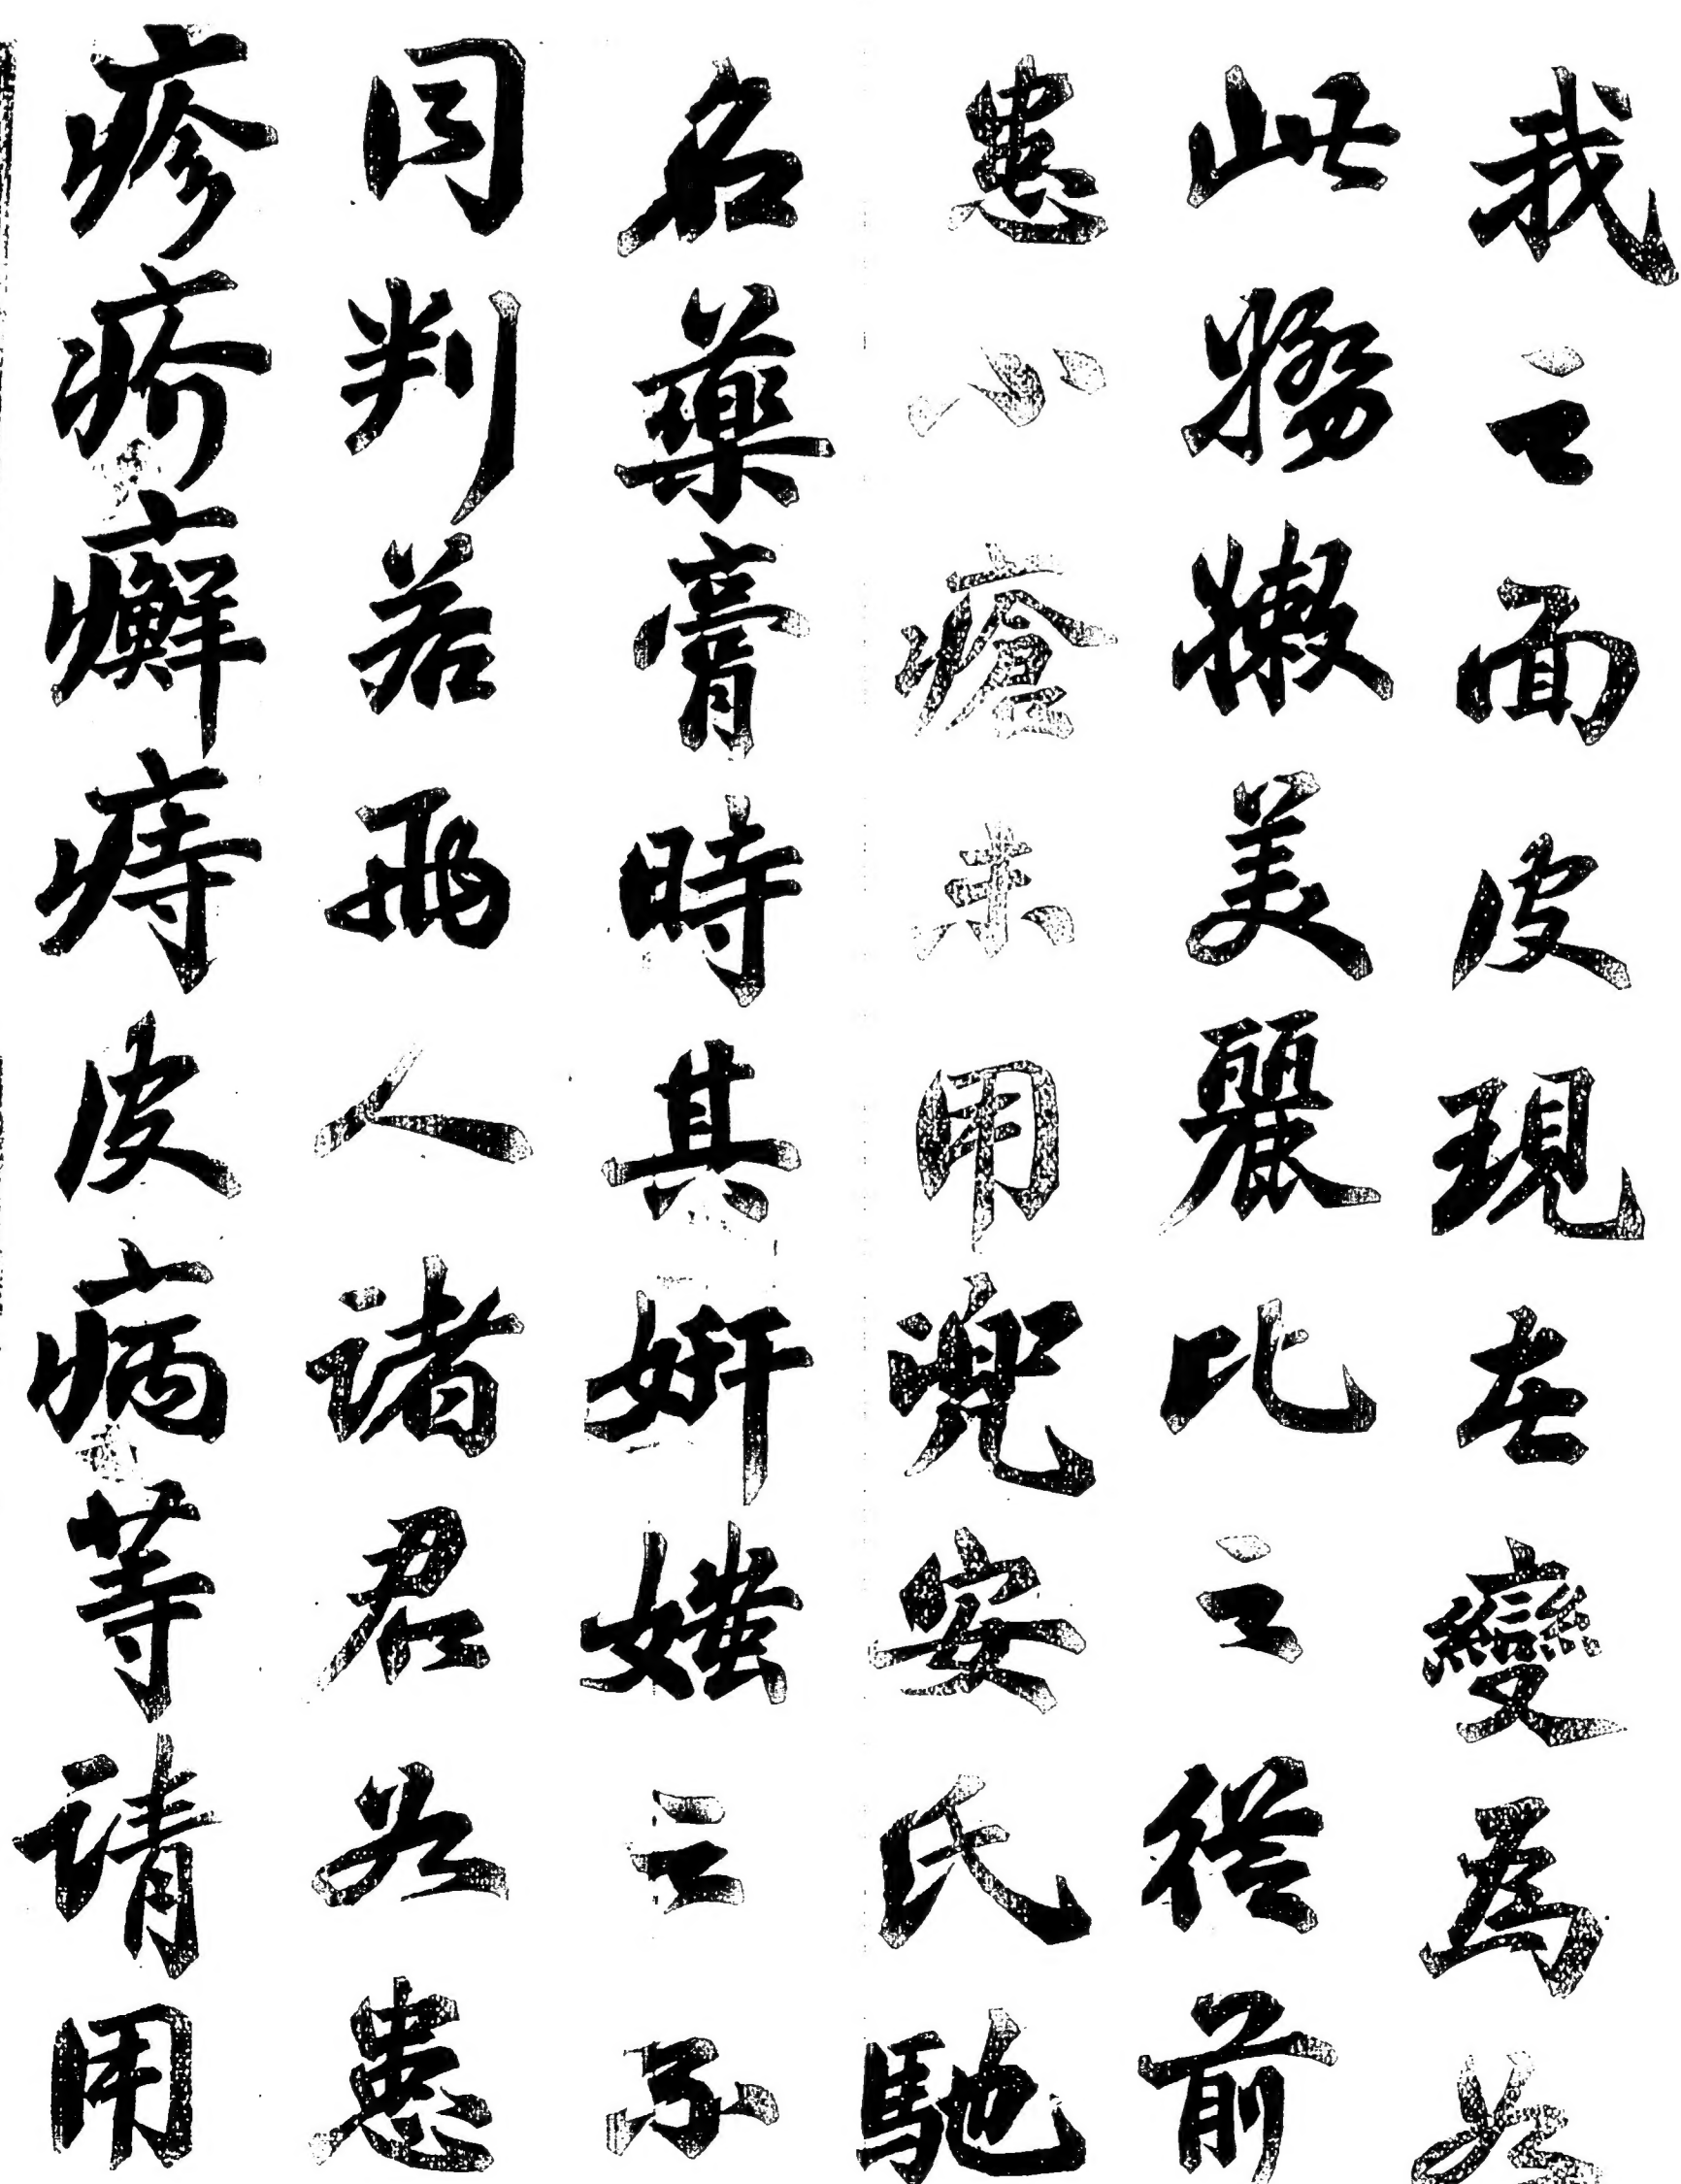 我之面皮現在變為如
此嬌嫩美麗比之從前
患小瘡未用兜安氏馳
名藥膏時其妍媸之不
同判若兩人諸君如患
疹疥癬痔皮病等請用